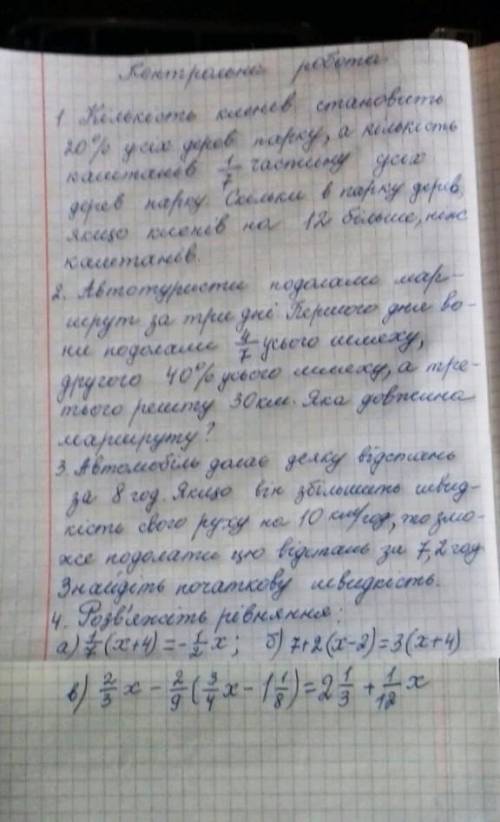 Контрольна робота
1 Кількість кленів становить
20% усіх дерев парку, а кількість
каштанів 1/7 частину усіх
дерев парку. Скільки в парку дерев,
якщо кленів на 12 більше, ніж
каштанів.
2. Автотуристи подолали мар-
шрут за три дні Першого дня во-
ни подолали 4/7 усього шляху,
другого 40% усього шляху, а тре-
тього решту 30 км. Яка довжина
маршруту?
3. Автомобіль долає деяку відстань
за 8 год. Якщо він збільшить швид-
кість свого руху на 10 км/год, то змо-
же подолати цю відстань за 7,2 год
Знайдіть початкову швидкість.
4. Розв'яжіть рівняння:
а) 1/7 (x+4) = -1/2 x; б) 7+2(x-2)=3(x+4)
в) 2/3 x - 2/9 (3/4 x - 1 1/8) = 2 1/3 + 1/12 x